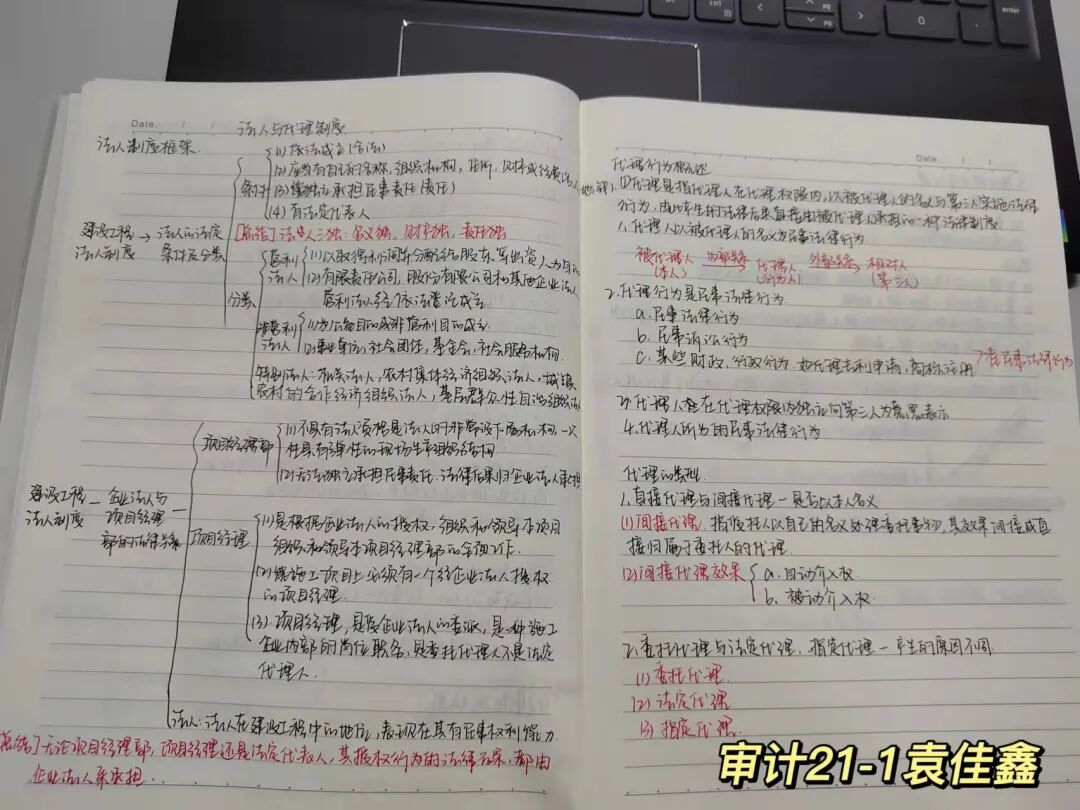 Date.
法人与代理制度
法人制度框架
(1) 依法成立(合法)
条件
(2) 应当有自己的名称、组织机构、住所、财产或经费
(3) 能独立承担民事责任(责任)
(4) 有法定代表人
建设工程 → 法人的法定
法人制度 条件及分类
[总结] 法人三独:名义独、财产独、责任独
分类
营利
法人
(1) 以取得利润并分配给股东等出资人为目的
(2) 有限责任公司、股份有限公司和其他企业法人
营利法人经依法登记成立
非营利
法人
(1) 为公益目的或非营利目的成立
(2) 事业单位、社会团体、基金会、社会服务机构
特别法人:机关法人、农村集体经济组织法人、城镇
农村的合作经济组织法人、基层群众性自治组织法人
项目经理部
(1) 不具有法人资格是法人的非常设下属机构,一次
性具有弹性的现场生产组织结构
(2) 无法独立承担民事责任,法律后果归企业法人承担
建设工程 — 企业法人与
法人制度 项目经理
部的法律关系
项目经理
(1) 是根据企业法人的授权,组织和领导本项目
组织和领导本项目经理部的全面工作
(2) 施工项目上必须有一个经企业法人授权
的项目经理
(3) 项目经理,是受企业法人的委派,是一种施工
企业内部的岗位职务,是委托代理人不是法定
代理人
法人:法人在建设工程中的地位,表现在其有民事权利能力
[总结] 无论项目经理部、项目经理还是法定代表人,其授权行为的法律后果,都由
企业法人来承担.
代理行为概述
Date
(1) 代理是指代理人在代理权限内,以被代理人的名义与第三人实施法律
行为,由此产生的法律后果直接由被代理人承担的一种法律制度
1. 代理人以被代理人的名义为民事法律行为
被代理人 内部关系 代理人 外部关系 相对人
(本人) (行为人) (第三人)
2. 代理行为是民事法律行为.
a. 民事法律行为
b. 民事诉讼行为
c. 某些财政、行政行为,如代理专利申请,商标注册
民事法律行为
3. 代理人在代理权限内独立向第三人为意思表示
4. 代理人所为的民事法律行为
代理的类型.
1. 直接代理与间接代理 — 是否以本人名义
(1) 间接代理.指受托人以自己的名义处理委托事务,其效果间接或直
接归属于委托人的代理.
(2) 间接代理效果
a. 自动介入权
b. 被动介入权
2. 委托代理与法定代理、指定代理 — 产生的原因不同.
(1) 委托代理
(2) 法定代理
(3) 指定代理
审计21-1袁佳鑫